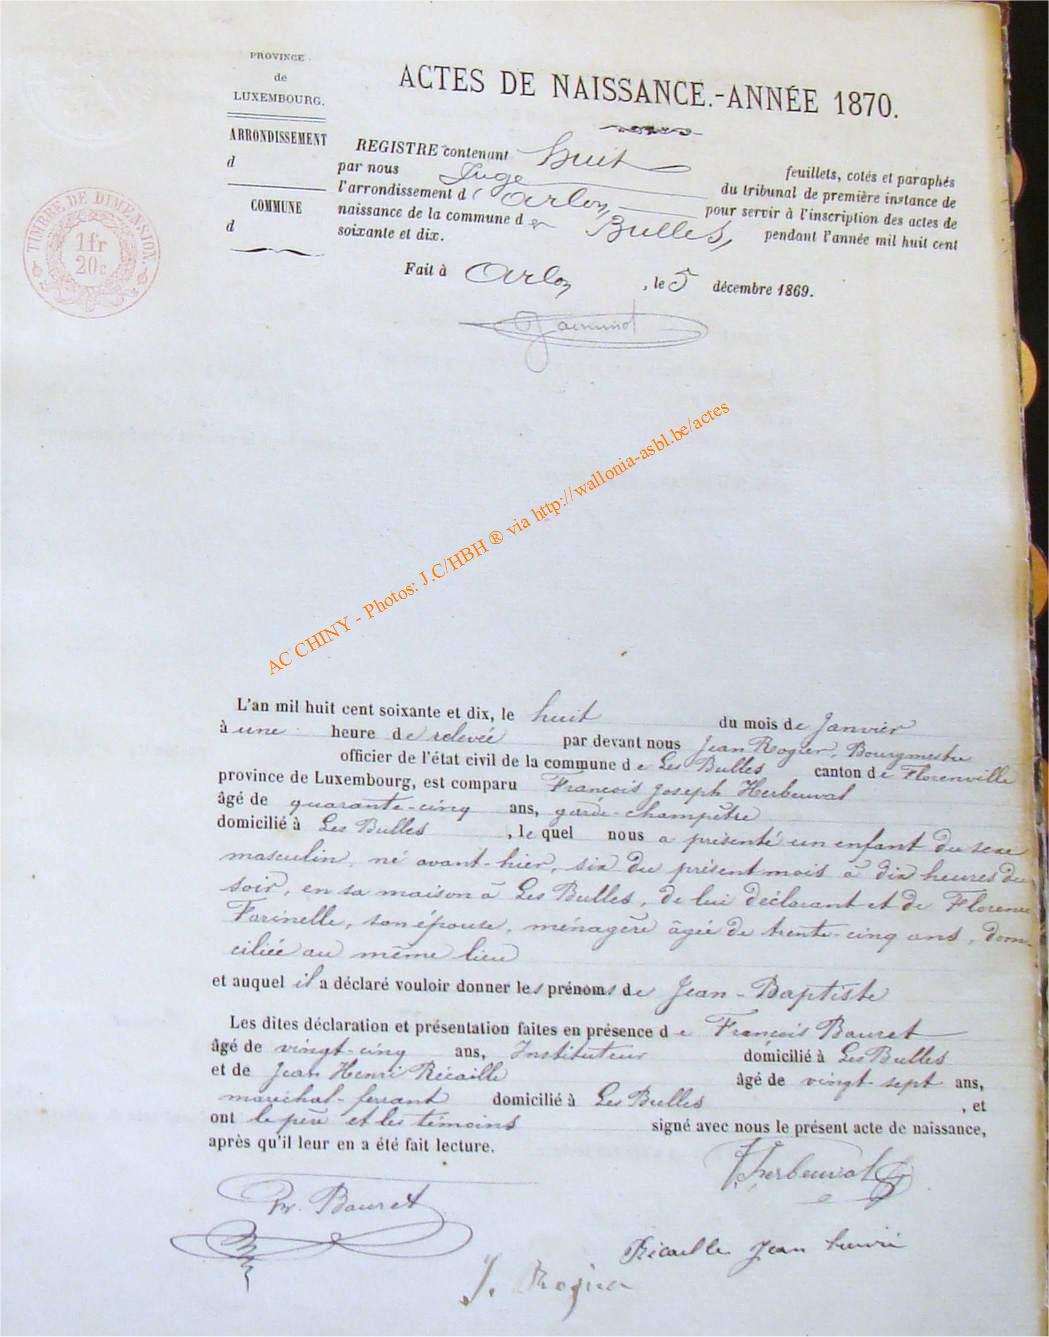 PROVINCE
de
LUXEMBOURG.
ARRONDISSEMENT
d
COMMUNE
d
TIMBRE DE DIMENSION.
1 fr
20 c
ACTES DE NAISSANCE.-ANNÉE 1870.
REGISTRE contenant huit feuillets, cotés et paraphés
par nous Juge du tribunal de première instance de
l'arrondissement d'Arlon, pour servir à l'inscription des actes de
naissance de la commune de Bulles, pendant l'année mil huit cent
soixante et dix.
Fait à Arlon, le 5 décembre 1869.
AC CHINY - Photos: J.C/HBH ® via http://wallonia-asbl.be/actes
L'an mil huit cent soixante et dix, le huit du mois de Janvier
à une heure de relevée par devant nous Jean Rogier, Bourgmestre
officier de l'état civil de la commune de Les Bulles canton de Florenville
province de Luxembourg, est comparu François Joseph Herbeuval
âgé de quarante-cinq ans, garde-champêtre
domicilié à Les Bulles, le quel nous a présenté un enfant du sexe
masculin, né avant-hier, six du présent mois à dix heures du
soir, en sa maison à Les Bulles, de lui déclarant et de Florence
Farinelle, son épouse, ménagère âgée de trente-cinq ans, domi-
ciliée au même lieu
et auquel il a déclaré vouloir donner les prénoms de Jean-Baptiste
Les dites déclaration et présentation faites en présence de François Bauret
âgé de vingt-cinq ans, Instituteur domicilié à Les Bulles
et de Jean Henri Récaille âgé de vingt sept ans,
maréchal-ferrant domicilié à Les Bulles, et
ont le père et les témoins signé avec nous le présent acte de naissance,
après qu'il leur en a été fait lecture.
Herbeuval
Fr. Bauret
Récaille Jean henri
J. Rogier